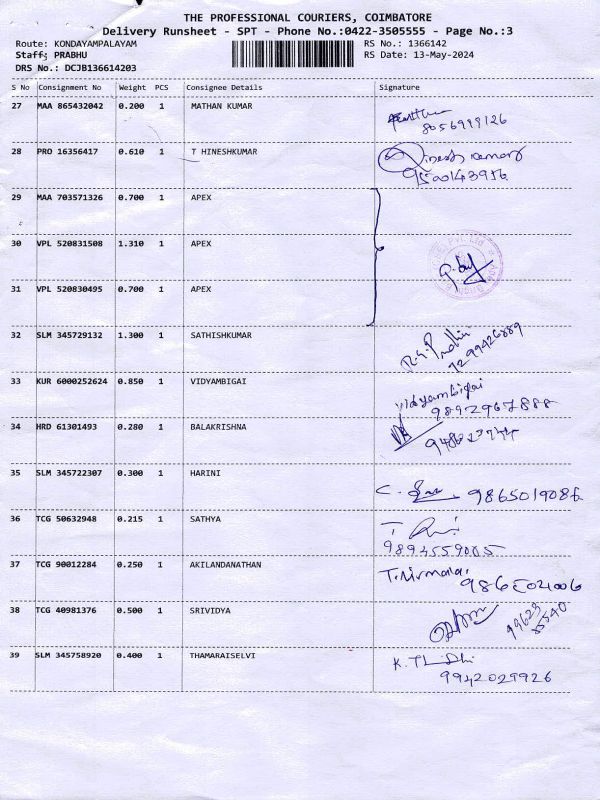 THE PROFESSIONAL COURIERS, COIMBATORE
Delivery Runsheet - SPT - Phone No.:0422-3505555 - Page No.:3
Route: KONDAYAMPALAYAM RS No.: 1366142
Staff: PRABHU RS Date: 13-May-2024
DRS No.: DCJB136614203
S No Consignment No Weight PCS Consignee Details Signature
27 MAA 865432042 0.200 1 MATHAN KUMAR
8056999126
28 PRO 16356417 0.610 1 T HINESHKUMAR Dinesh Kumar
9500143956
29 MAA 703571326 0.700 1 APEX
30 VPL 520831508 1.310 1 APEX
31 VPL 520830495 0.700 1 APEX
32 SLM 345729132 1.300 1 SATHISHKUMAR
33 KUR 6000252624 0.850 1 VIDYAMBIGAI Vidyambigai
9892967888
34 HRD 61301493 0.280 1 BALAKRISHNA
35 SLM 345722307 0.300 1 HARINI 9865019086
36 TCG 50632948 0.215 1 SATHYA
37 TCG 90012284 0.250 1 AKILANDANATHAN T.Nirmala
38 TCG 40981376 0.500 1 SRIVIDYA
39 SLM 345758920 0.400 1 THAMARAISELVI
9942029926